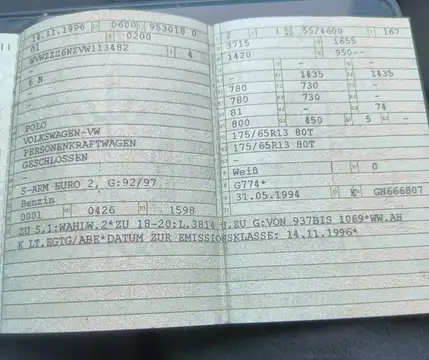 14.11.1996 0600 953018 0
01 0200
WVWZZZ6NZVW113482 4
-
6 N
-
-
-
POLO
VOLKSWAGEN-VW
PERSONENKRAFTWAGEN
GESCHLOSSEN
-
S-ARM EURO 2, G:92/97
Benzin
0001 0426 1598
2 1 55/4600 167
3715 1655
1420 950--
-
- 1435 1435
780 - 730 -
780 - 730 -
81 - - 74
800 450 5 -
175/65R13 80T
175/65R13 80T
-
-
Weiß 0
G774*
31.05.1994 K GN666807
ZU S.1:WAHLW.2*ZU 18-20:L.3814 U.ZU G:VON 937BIS 1069*WW.AH
K LT.EGTG/ABE*DATUM ZUR EMISSIONSKLASSE: 14.11.1996*